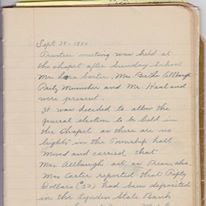 Sept 28 - 1950
Trustees meeting was held at
the chapel after Sunday School
Mr Carter, Mrs Bertha Allbaugh
Perly Mumsher and Mr Haaland
were present.
It was decided to allow the
general election to be held in
the Chapel as there are no
lights in the Township hall
Moved and carried that
Mrs Allbaugh act as
Mrs Carter reported that Fifty
Dollars (50) had been deposited
in the Lynden State Bank